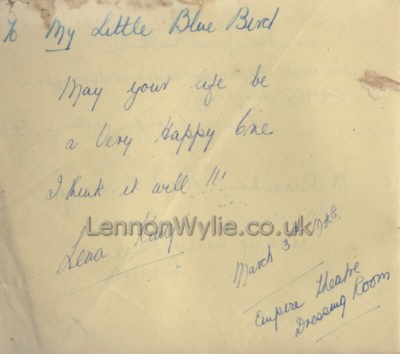 To My Little Blue Bird
May your life be
a Very Happy One
I think it will !!!
LennonWylie.co.uk
Lena
March 3rd 1928.
Empire Theatre
Dressing Room